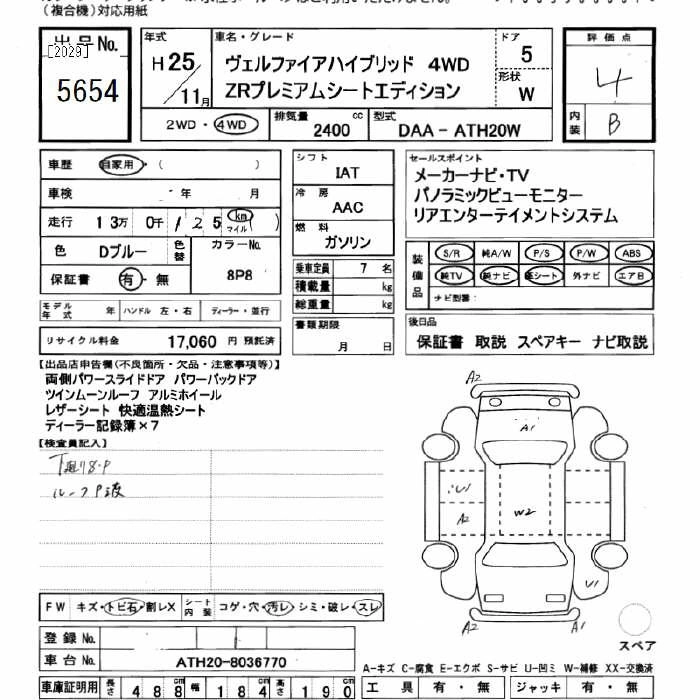 (複合機)対応用紙
出品No.
[2029]
5654
年式
H25/11月
車名・グレード
ヴェルファイアハイブリッド 4WD
ZRプレミアムシートエディション
ドア
5
形状
W
評価点
4
内装
B
2WD・4WD
排気量
2400 cc
型式
DAA - ATH20W
車歴 自家用・( )
車検 年 月
走行 13万 0千 125 km マイル
色 Dブルー 色替
カラーNo.
8P8
保証書 有・無
モデル年式 年 ハンドル 左・右 ディーラー・並行
リサイクル料金 17,060 円 預託済
シフト
IAT
冷房
AAC
燃料
ガソリン
乗車定員 7 名
積載量 kg
総重量 kg
書類期限
月 日
セールスポイント
メーカーナビ・TV
パノラミックビューモニター
リアエンターテイメントシステム
装備品
S/R 純A/W P/S P/W ABS
純TV 純ナビ 革シート 外ナビ エアB
ナビ型番:
後日品
保証書 取説 スペアキー ナビ取説
【出品店申告欄(不良箇所・欠品・注意事項等)】
両側パワースライドドア パワーバックドア
ツインムーンルーフ アルミホイール
レザーシート 快適温熱シート
ディーラー記録簿×7
【検査員記入】
ルーフP波
A2
A1
U1
A2
W2
U1
A2
A1
スペア
FW キズ・トビ石・割レX シート内装 コゲ・穴・汚レ・シミ・破レ・スレ
登録No.
車台No. ATH20-8036770
A-キズ C-腐食 E-エクボ S-サビ U-凹ミ W-補修 XX-交換済
車庫証明用 長さ 488cm 幅 184cm 高さ 190
工具 有・無 ジャッキ 有・無